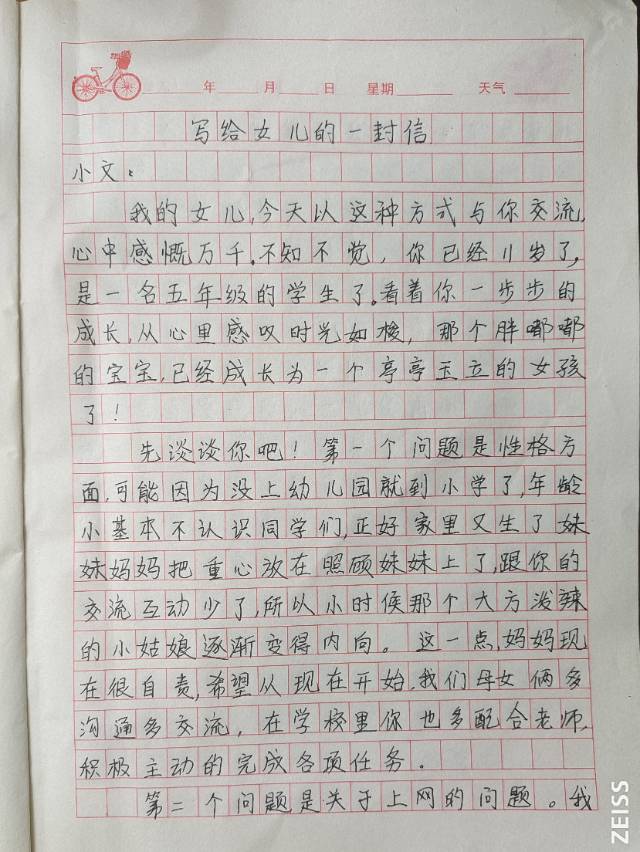 年 月 日 星期 天气
写给女儿的一封信
小文:
我的女儿,今天以这种方式与你交流,
心中感慨万千。不知不觉,你已经11岁了,
是一名五年级的学生了。看着你一步步的
成长,从心里感叹时光如梭,那个胖嘟嘟
的宝宝,已经成长为一个亭亭玉立的女孩
了!
先谈谈你吧!第一个问题是性格方
面,可能因为没上幼儿园就到小学了,年龄
小基本不认识同学们,正好家里又生了妹
妹妈妈把重心放在照顾妹妹上了,跟你的
交流互动少了,所以小时候那个大方泼辣
的小姑娘逐渐变得内向。这一点,妈妈现
在很自责,希望从现在开始,我们母女俩多
沟通多交流,在学校里你也多配合老师,
积极主动的完成各项任务。
第二个问题是关于上网的问题。我
ZEISS